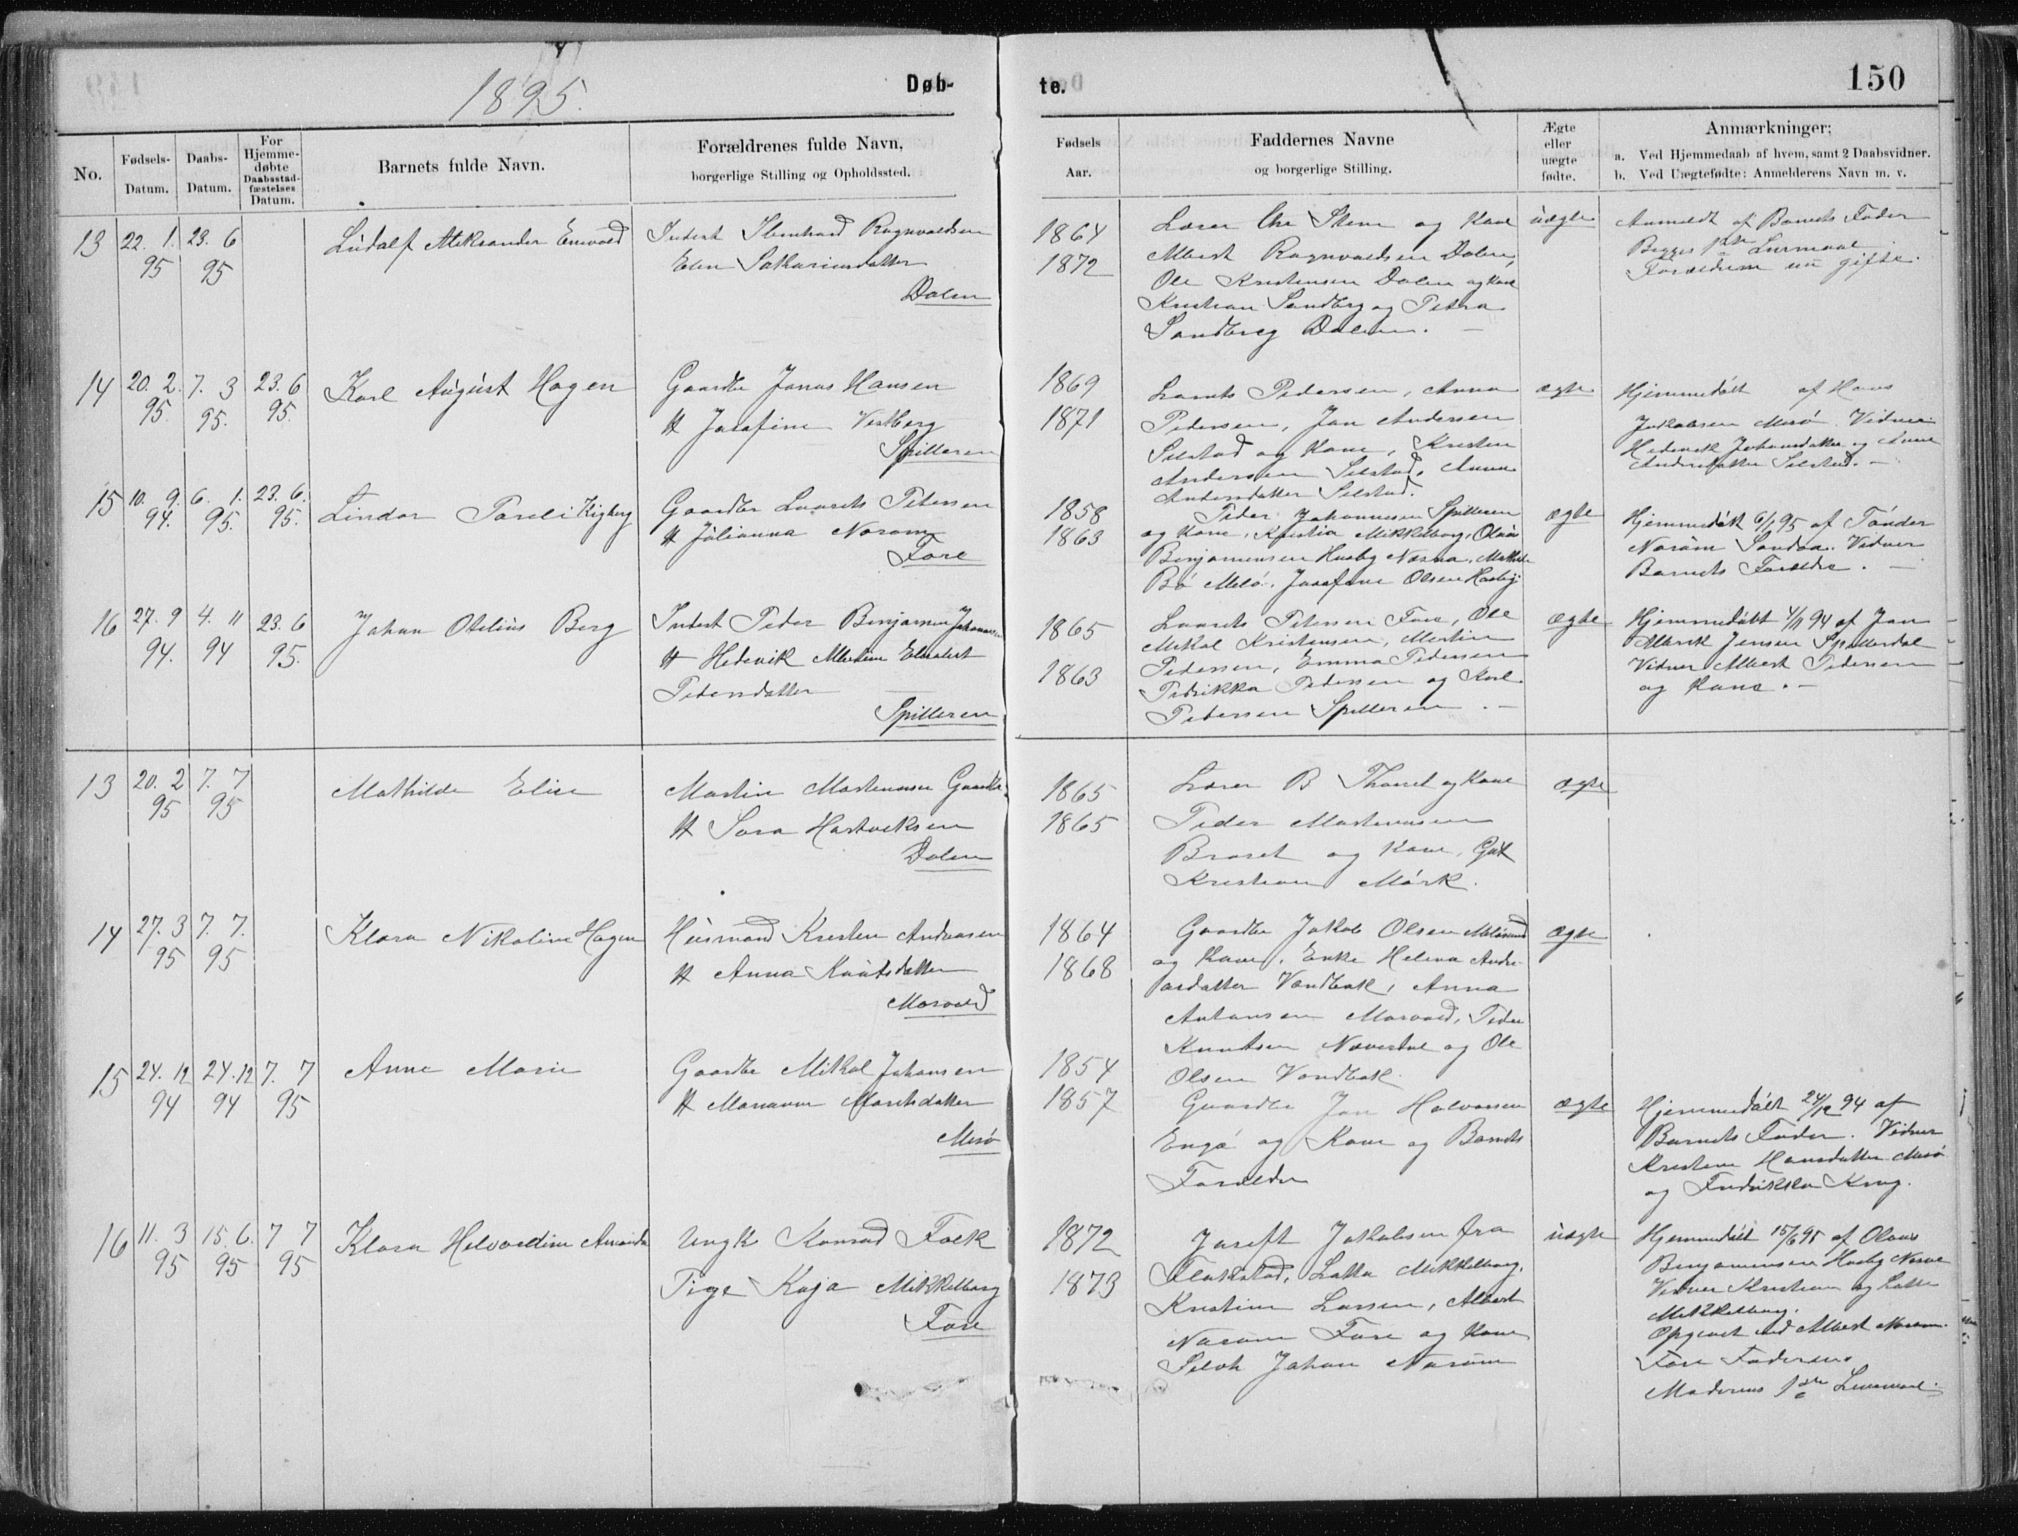 1895.
Døb-
te.
150
No.
Fødsels-
Datum.
Daabs-
Datum.
For
Hjemme-
døbte
Daabsstad-
fæstelses
Datum.
Barnets fulde Navn.
Forældrenes fulde Navn,
borgerlige Stilling og Opholdssted.
Fødsels
Aar.
Faddernes Navne
og borgerlige Stilling.
Ægte
eller
uægte
fødte.
Anmærkninger;
a. Ved Hjemmedaab af hvem, samt 2 Daabsvidner.
b. Ved Uægtefødte: Anmelderens Navn m. v.
13
22. 1.
95
23. 6
95
Ludolf Aleksander Enevold
Inderst Ragnvaldsen
Elen Sakariasdatter
Dalen
1864
1872
Lærer Skeve og Kone
Albert Ragnvaldsen Dalen,
Ole Kristensen Dalen og Kone
Kristian Sandberg og Petra
Sandberg Dalen.
uægte
Anmeldt af Barnets Fader
Begges 1ste Leiermaal
Forældrene nu gifte.
14
20. 2.
95.
7. 3
95.
23. 6
95.
Karl August Hagen
Gaardbr Jonas Hansen
H Josefine Vestberg
Spilderen
1869
1871
Lorents Pedersen, Anna
Pedersen, Jon Andersen
Selstad og Kone, Kristen
Andersen Selstad, Anna
Andersdatter Selstad.
ægte
Hjemmedøbt af Hans
Jakobsen Mesø. Vidner
Hedevik Johansdatter og Anne
Andersdatter Selstad.
15
10. 9.
94.
6. 1.
95.
23. 6.
95.
Lindor Toreli Kigberg
Gaardbr Laurits Petersen
H Julianna Norum
Fore
1858
1863
Peder Johannesen Spilderen
og Kone, Kristia Mikkelborg, Olaus
Benjaminsen Husby Nesna, Mathilde
Bø Melø. Josefine Olsen Husby.
ægte
Hjemmedøbt 6/1 95 af Tønder
Norum Sandaa. Vidner
Barnets Forældre.
16
27. 9
94.
4. 11
94
23. 6
95.
Johan Otelius Berg
Inderst Peder Benjamin Johannesen
H Hedevik Martine Elisabet
Pedersdatter
Spilderen
1865
1863
Laurits Petersen Fore, Ole
Mikal Kristensen, Martin
Pedersen, Emma Pedersen
Fredrikka Pedersen og Karl
Petersen Spilderen.
ægte
Hjemmedøbt 4/11 94 af Jon
Jensen Spilderdal
Vidner Albert Pedersen
og Kone.
13
20. 2
95
7. 7
95
Mathilde Elise
Martin Mortensen Gaardbr.
H Sara Hartviksen
Dalen
1865
1865
Lærer B og Kone
Peder Mortensen
Braset og Kone, Gut
Kristian Mørk.
ægte
14
27. 3
95
7. 7.
95
Klara Nikoline Hagen
Husmand Kristen Andreasen
H Anna Knutsdatter
Mosvold
1864
1868
Gaardbr Jakob Olsen Meløsund
og Kone, Enke Helena Andre-
asdatter Vandbak, Anna
Antonsen Mosvold, Peder
Knutsen Næverdal og Ole
Olsen Vandbak.
ægte
15
24. 12
94
24. 12
94
7. 7
95
Anne Marie
Gaardbr Mikal Johansen
H Marianne Moritsdatter
Mesø
1854
1857
Gaardbr Jon Halvorsen
Engø og Kone og Barnets
Forældre
ægte
Hjemmedøbt 24/12 94 af
Barnets Fader. Vidner
Kristine Hansdatter Mesø
og Fredrikka Krog.
16
11. 3
95
15. 6.
95
7 7
95
Klara Halvardine Amanda
Ungk Konrad Falk
Pige Kaja Mikkelborg
Fore
1872
1873
Joseft Jakobsen fra
Flakstad, Lotta Mikkelborg,
Kristine Larsen, Albert
Norum Fore og Kone
Johan Norum
uægte
Hjemmedøbt 15/6 95 af Olaus
Benjaminsen Husby Nesna
Vidner Kristian og Lotte
Mikkelborg.
Opgivet ved Albert Norum
Fore Faderens
Moderens 1ste Leiermaal.